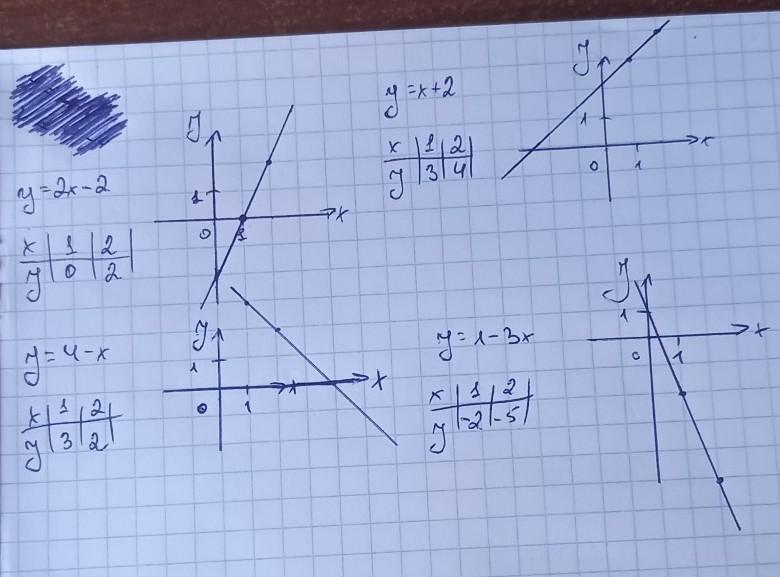 y=2x-2
x | 1 | 2
y | 0 | 2
y
1
0
1
x
y=x+2
x | 1 | 2
y | 3 | 4
y
1
0
1
x
y=4-x
x | 1 | 2
y | 3 | 2
y
1
0
1
x
x
y=1-3x
x | 1 | 2
y | -2 | -5
y
1
0
1
x